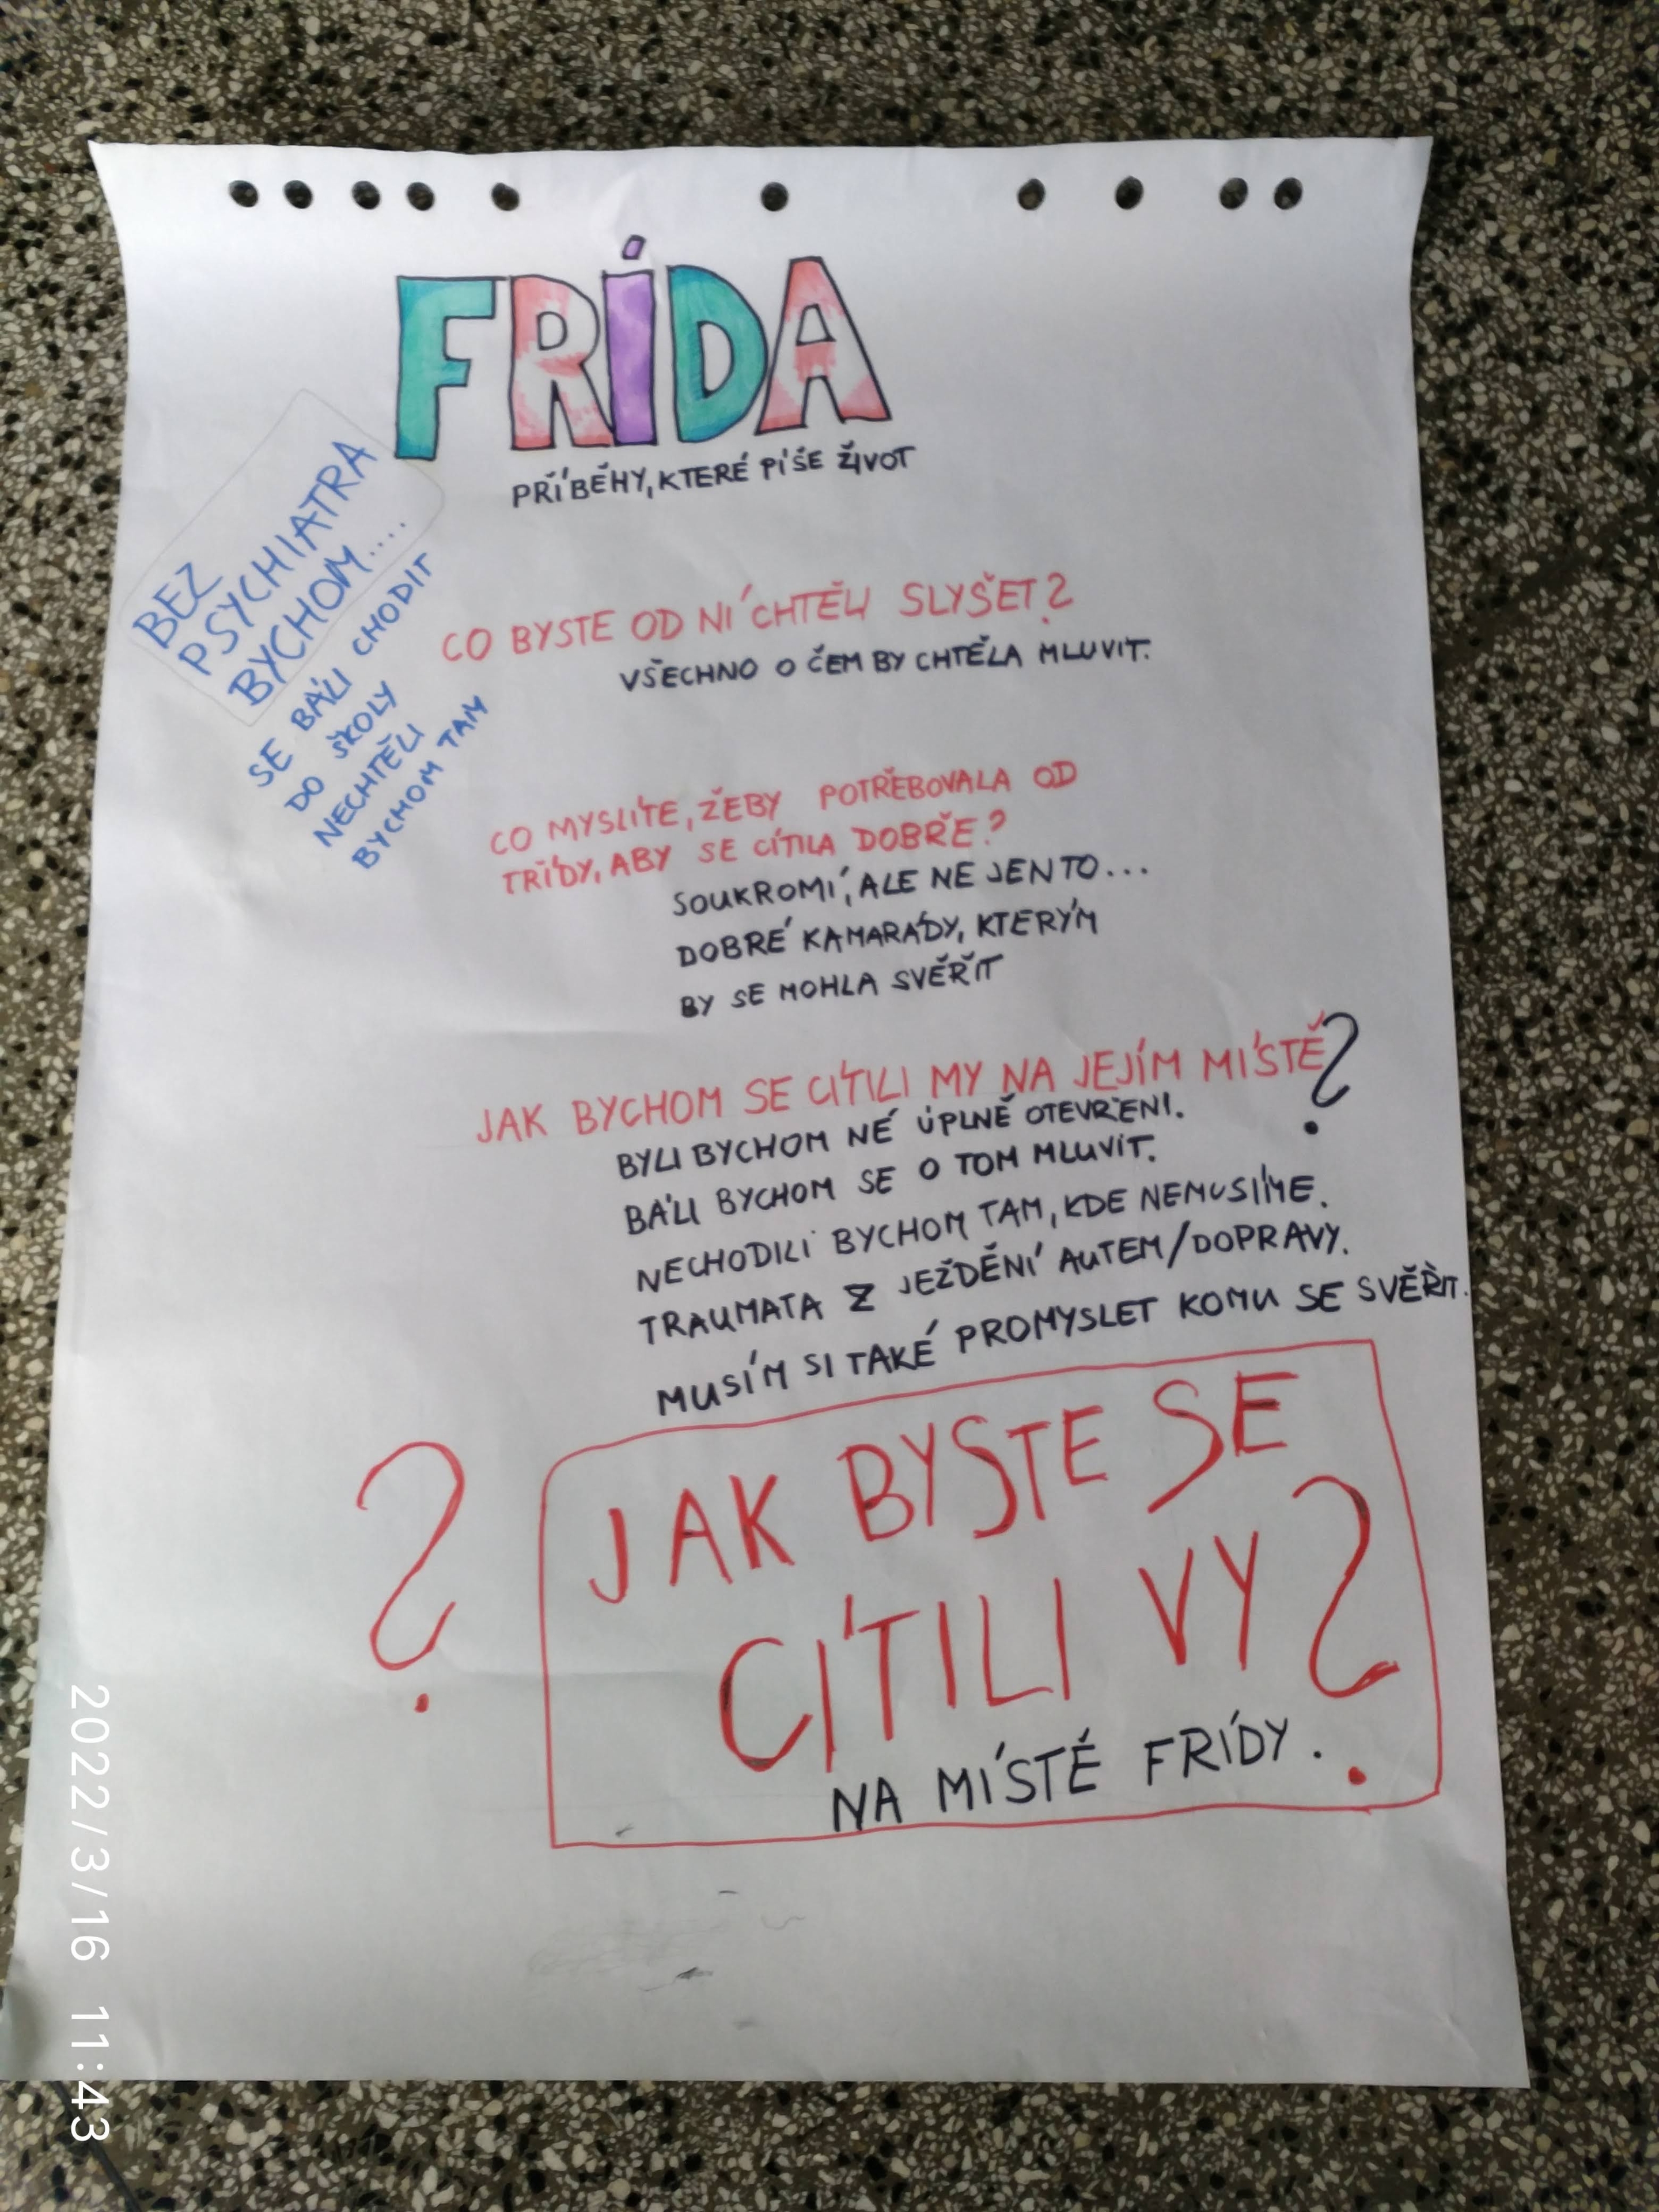 FRÍDA
PŘÍBĚHY, KTERÉ PÍŠE ŽIVOT
BEZ
PSYCHIATRA
BYCHOM....
SE BÁLI CHODIT
DO ŠKOLY
NECHTĚLI
BYCHOM TAM
CO BYSTE OD NÍ CHTĚLI SLYŠET?
VŠECHNO O ČEM BY CHTĚLA MLUVIT.
CO MYSLÍTE, ŽEBY POTŘEBOVALA OD
TŘÍDY, ABY SE CÍTILA DOBŘE?
SOUKROMÍ, ALE NE JEN TO...
DOBRÉ KAMARÁDY, KTERÝM
BY SE MOHLA SVĚŘIT
JAK BYCHOM SE CÍTILI MY NA JEJÍM MÍSTĚ?
BYLI BYCHOM NÉ ÚPLNĚ OTEVŘENI.
BÁLI BYCHOM SE O TOM MLUVIT.
NECHODILI BYCHOM TAM, KDE NEMUSÍME.
TRAUMATA Z JEŽDĚNÍ AUTEM/DOPRAVY.
MUSÍM SI TAKÉ PROMYSLET KOMU SE SVĚŘIT.
?
JAK BYSTE SE
CÍTILI VY?
NA MÍSTĚ FRÍDY.
2022/3/16 11:43